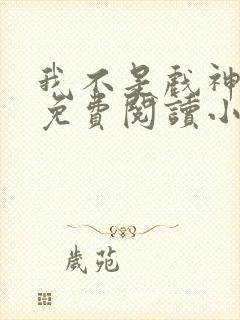 我不是戲神
免費閱讀小
歲苑